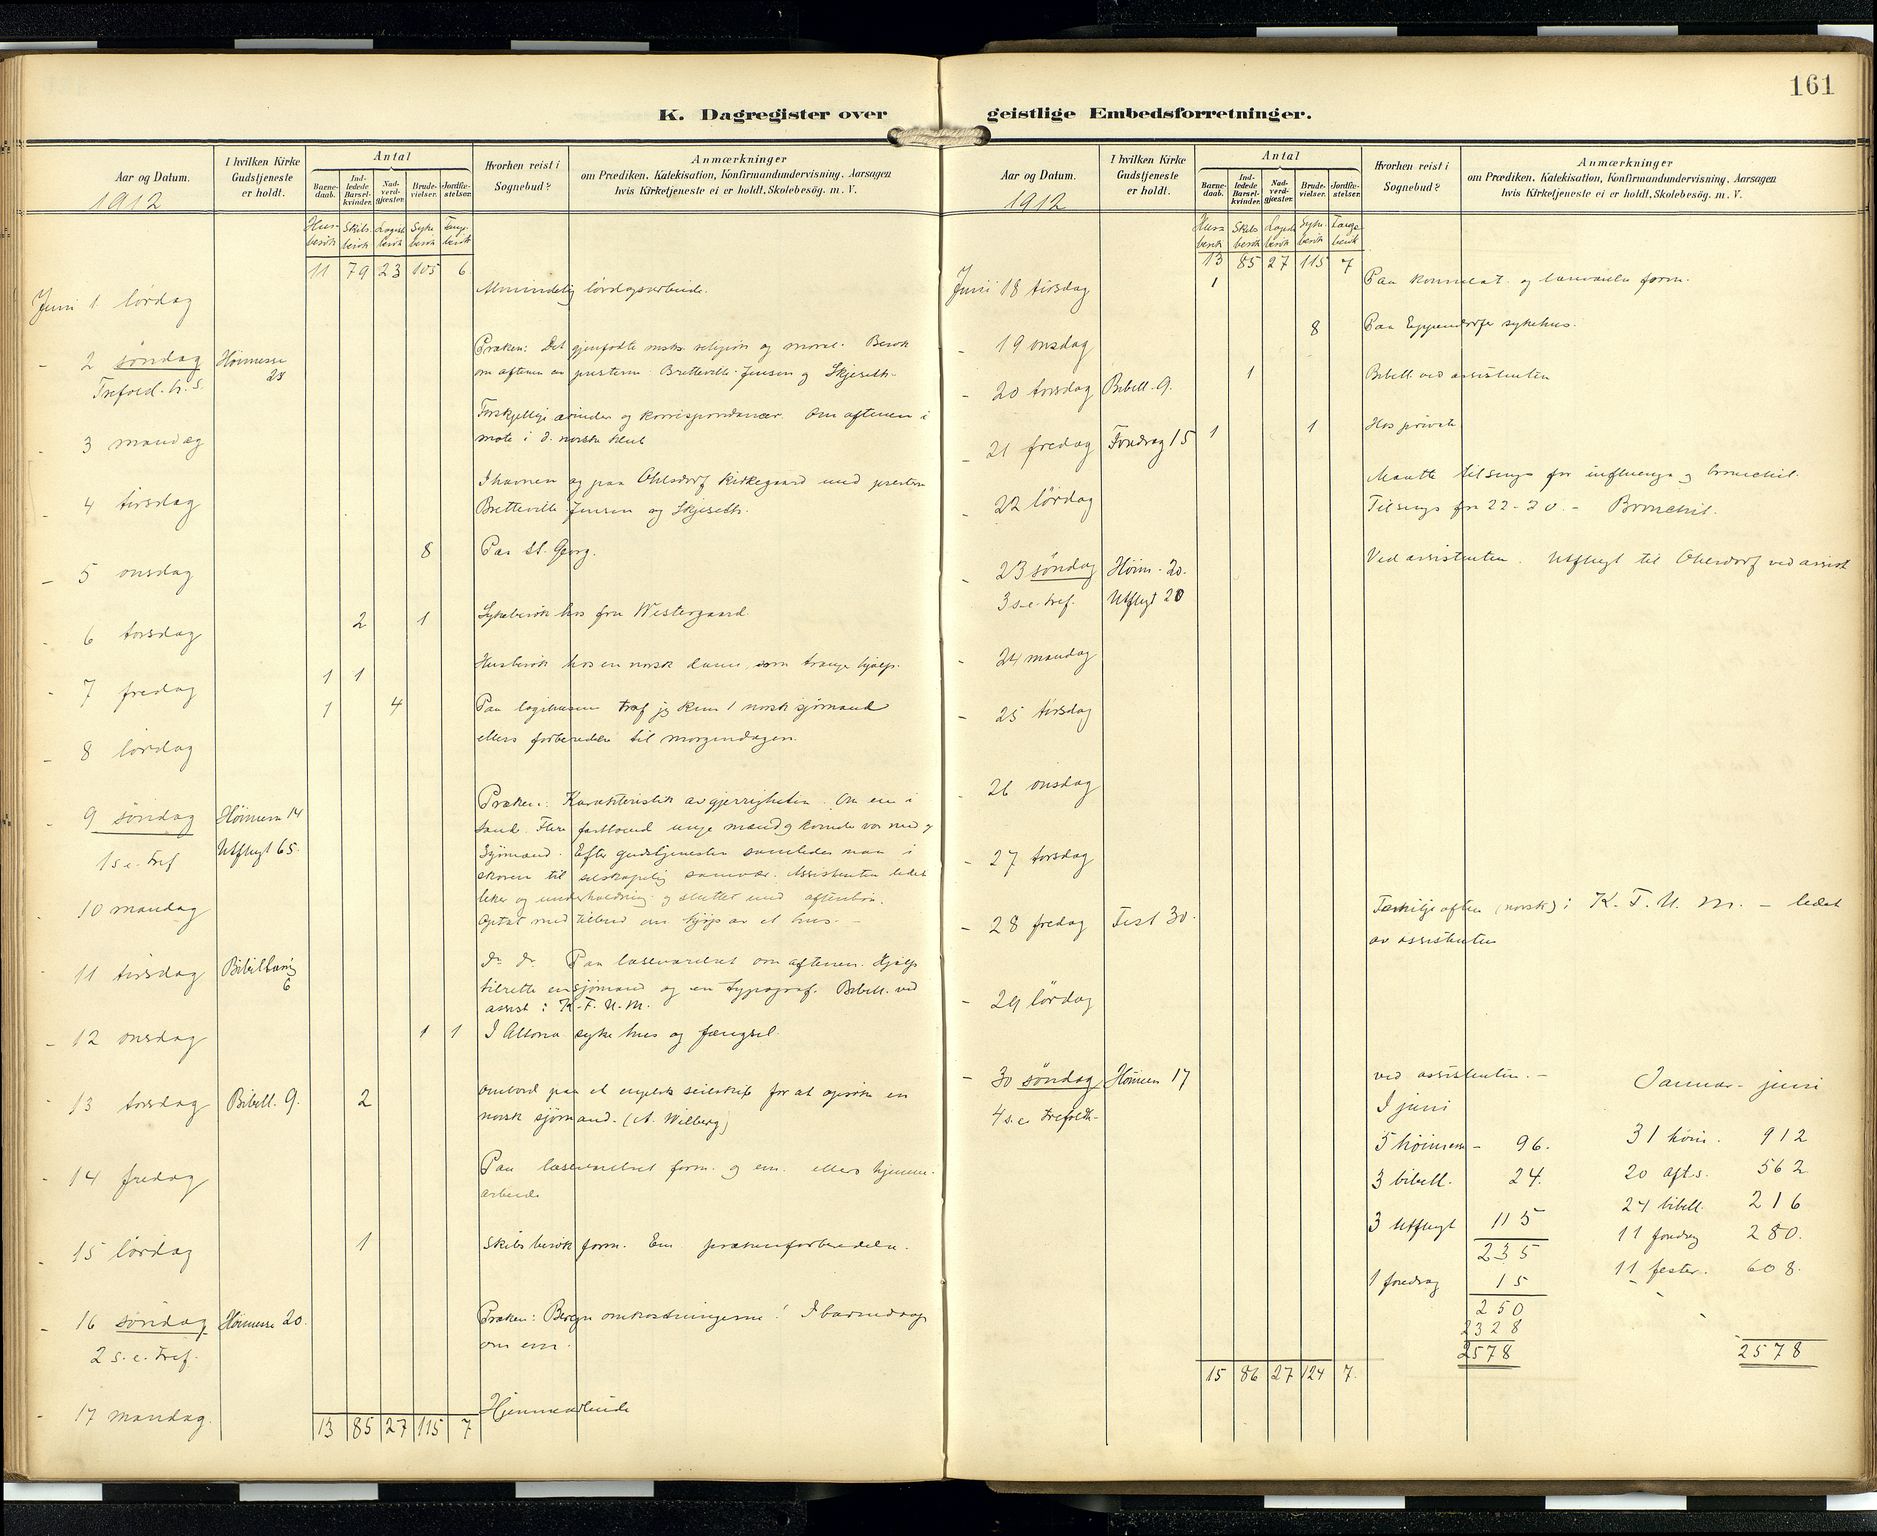 161
K. Dagregister over geistlige Embedsforretninger.
Aar og Datum.
1912
I hvilken Kirke
Gudstjeneste
er holdt.
Antal
Barne-
daab.
Ind-
ledede
Barsel-
kvinder.
Nad-
verd-
gjester.
Brude-
vielser.
Jordfæ-
stelser.
Hvorhen reist i
Sognebud?
Anmærkninger
om Prædiken, Katekisation, Konfirmandundervisning, Aarsagen
hvis Kirketjeneste ei er holdt, Skolebesøg. m. V.
Hus-
besøk
Skibs-
besøk
Logi
besøk
Syke
besøk
Fange
besøk
11 79 23 105 6
Juni 1 lørdag Almindelig lørdagsarbeide.
- 2 søndag Høimesse Præken: Det gjenfødte mske religion og moral. Besøk
Trefold. h. s. 28 om aftenen av presterne Bretteville-Jensen og Skjeseth.
- 3 mandag Forskjellige ærinder og korrespondancer. Om aftenen i
møte i d. norske klub
- 4 tirsdag I havnen og paa Ohlsdorf kirkegaard med presterne
Bretteville Jensen og Skjeseth.
- 5 onsdag 8 Paa St. Georg.
- 6 torsdag 2 1 Sykebesøk hos fru Westergaard.
- 7 fredag 1 1 Husbesøk hos en norsk dame, som trænge hjælp.
- 8 lørdag 1 4 Paa logihusene traf jeg kun 1 norsk sjømand
ellers forberedelse til morgendagen.
- 9 søndag Høimesse 14 Præken: Karakteristik av gjerrigheten. Om em. i
1 s. e. tref Utflugt 65. Flere fastboende unge mænd og kvinder var med og
Sjømænd. Efter gudstjenesten samledes man i
skoven til selskapelig samvær. Assistenten ledet
- 10 mandag leker og underholdning og sluttet med aftenbøn.
Optat med tilbud om kjøp av et hus.
- 11 tirsdag Bibellæsn. 6 do do Paa læseværelset om aftenen. Hjalp
tilrette en sjømand og en typograf. Bibell. ved
assist i K. F. U. M.
- 12 onsdag 1 1 I Altona sykehus og fængsel.
- 13 torsdag Bibell. 9. 2 Ombord paa et engelsk seilskib for at opsøke en
norsk sjømand. (A. Wilberg)
- 14 fredag Paa læseværelset form. og em. ellers hjemme-
arbeide
- 15 lørdag 1 Skibsbesøk form. Em. prækenforberedelse.
- 16 søndag Høimesse 20. Præken: Beregn omkostningerne! I barnedaap
2 s. e. tref. om em.
- 17 mandag. Hjemmearbeide
13 85 27 115 7
Aar og Datum.
1912
I hvilken Kirke
Gudstjeneste
er holdt.
Antal
Barne-
daab.
Ind-
ledede
Barsel-
kvinder.
Nad-
verd-
gjester.
Brude-
vielser.
Jordfæ-
stelser.
Hvorhen reist i
Sognebud?
Anmærkninger
om Prædiken, Katekisation, Konfirmandundervisning, Aarsagen
hvis Kirketjeneste ei er holdt, Skolebesøg. m. V.
Hus
besøk
Skibs
besøk
Logi
besøk
Syke.
besøk
Fange
besøk
13 85 27 115 7
Juni 18 tirsdag 1 Paa konsulat og læseværelse form.
- 19 onsdag 8 Paa Eppendorfer sykehus.
- 20 torsdag Bibell. 9. 1 Bibell. ved assistenten
- 21 fredag Foredrag 15 1 1 Hos private
- 22 lørdag Maatte tilsengs for influenza og bronchit.
Tilsengs fra 22-30. - Bronchit.
- 23 søndag Høim. 20. Ved assistenten. Utflugt til Ohlsdorf ved assist
3 s. e. tref. Utflugt 20
- 24 mandag
- 25 tirsdag
- 26 onsdag
- 27 torsdag
- 28 fredag Fest 30. Familjeaften (norsk) i K. F. U. M. - ledet
av assistenten
- 29 lørdag
- 30 søndag Høimesse 17 ved assistenten. -
4 s. e. trefoldh.
15 86 27 124 7.
I juni
5 høimesse - 96.
3 bibell. 24.
3 Utflugt 115
235
1 foredrag 15
250
2328
2578
Januar - juni
31 høim. 912
20 afts. 562
24 bibell. 216
11 foredrag 280.
11 fester. 608.
2578